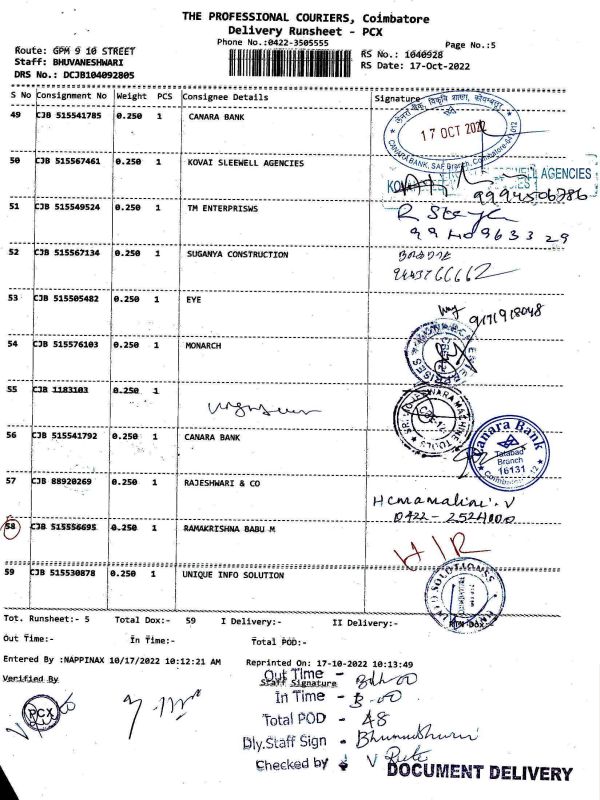 THE PROFESSIONAL COURIERS, Coimbatore
Delivery Runsheet - PCX
Phone No.:0422-3505555
Page No.:5
Route: GPM 9 10 STREET
Staff: BHUVANESHWARI
DRS No.: DCJB104092805
RS No.: 1040928
RS Date: 17-Oct-2022
S No Consignment No Weight PCS Consignee Details Signature
49 CJB 515541785 0.250 1 CANARA BANK
17 OCT 2022
CANARA BANK, SAF Branch, Coimbatore-641012
50 CJB 515567461 0.250 1 KOVAI SLEEWELL AGENCIES
AGENCIES
9994506786
51 CJB 515549524 0.250 1 TM ENTERPRISWS
52 CJB 515567134 0.250 1 SUGANYA CONSTRUCTION
53 CJB 515505482 0.250 1 EYE
9171918048
54 CJB 515576103 0.250 1 MONARCH
55 CJB 1183103 0.250 1
56 CJB 515541792 0.250 1 CANARA BANK
Canara Bank
Tatabad
Branch
16131
Coimbatore - 12
57 CJB 88920269 0.250 1 RAJESHWARI & CO
Hemamalini. V
0422-
58 CJB 515556695 0.250 1 RAMAKRISHNA BABU M
59 CJB 515530878 0.250 1 UNIQUE INFO SOLUTION
Tot. Runsheet:- 5 Total Dox:- 59 I Delivery:- II Delivery:- Dox:-
Out Time:- In Time:- Total POD:-
Entered By :NAPPINAX 10/17/2022 10:12:21 AM Reprinted On: 17-10-2022 10:13:49
Verified By Staff Signature
PCX
Out Time -
In Time -
Total POD - 48
Dly.Staff Sign -
Checked by
DOCUMENT DELIVERY